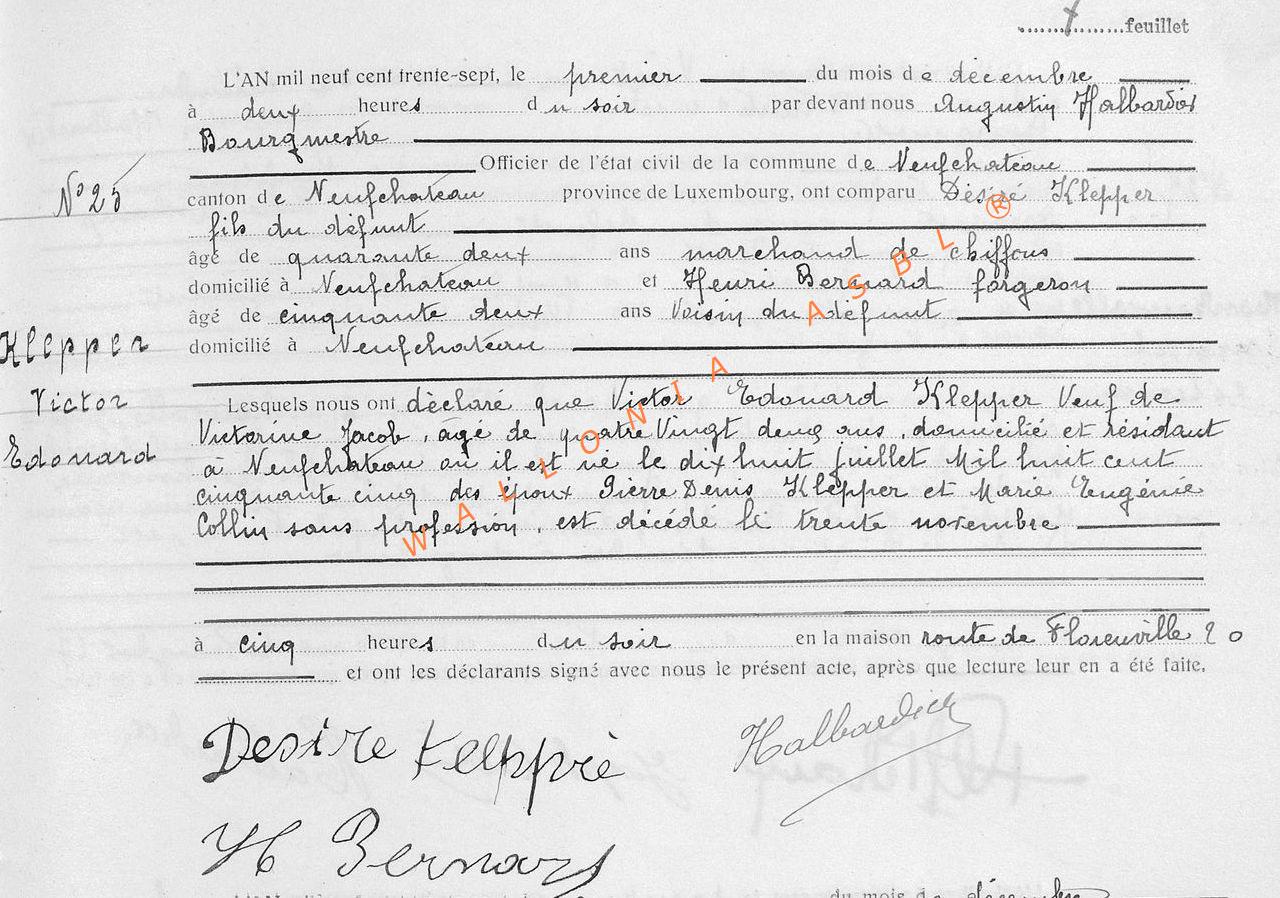 feuillet
L'AN mil neuf cent trente-sept, le premier du mois de décembre
à deux heures du soir par devant nous Augustin Halbardier
Bourgmestre
Officier de l'état civil de la commune de Neufchateau
N° 25 canton de Neufchateau province de Luxembourg, ont comparu Désiré Klepper
fils du défunt
âgé de quarante deux ans marchand de chiffons
domicilié à Neufchateau et Henri Bernard forgeron
âgé de cinquante deux ans Voisin du défunt
Klepper domicilié à Neufchateau
Victor
Edouard
Lesquels nous ont déclaré que Victor Edouard Klepper Veuf de
Victorine Jacob, âgé de quatre Vingt deux ans, domicilié et résidant
à Neufchateau où il est né le dix huit juillet Mil huit cent
cinquante cinq des époux Pierre Denis Klepper et Marie Eugénie
Collin sans profession, est décédé le trente novembre
à cinq heures du soir en la maison route de Florenville 20
et ont les déclarants signé avec nous le présent acte, après que lecture leur en a été faite.
Desire Kelppre Halbardier
H Bernard
du mois de décembre
WALLONIA ASBL ®